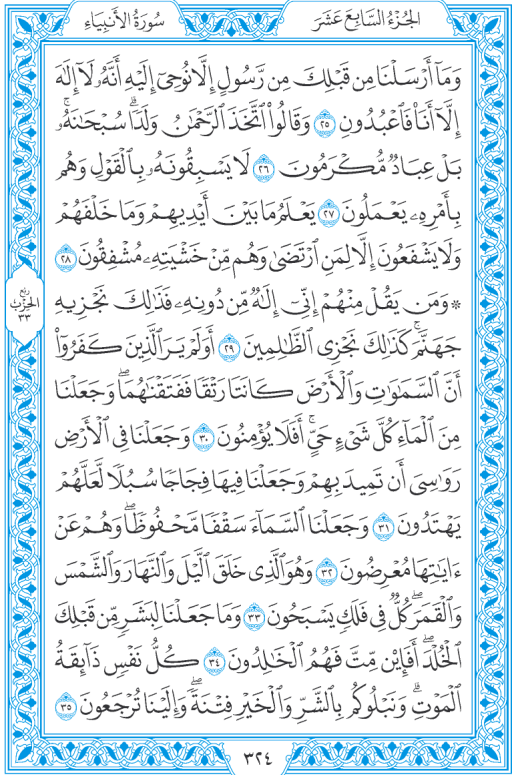 الجُزْءُ السَّابِعَ عَشَرَ
سُورَةُ الأَنبِيَاءِ
وَمَآ أَرْسَلْنَا مِن قَبْلِكَ مِن رَّسُولٍ إِلَّا نُوحِىٓ إِلَيْهِ أَنَّهُۥ لَآ إِلَٰهَ
إِلَّآ أَنَا۠ فَٱعْبُدُونِ ٢٥ وَقَالُوا۟ ٱتَّخَذَ ٱلرَّحْمَٰنُ وَلَدًۭا ۗ سُبْحَٰنَهُۥ ۚ
بَلْ عِبَادٌۭ مُّكْرَمُونَ ٢٦ لَا يَسْبِقُونَهُۥ بِٱلْقَوْلِ وَهُم
بِأَمْرِهِۦ يَعْمَلُونَ ٢٧ يَعْلَمُ مَا بَيْنَ أَيْدِيهِمْ وَمَا خَلْفَهُمْ
وَلَا يَشْفَعُونَ إِلَّا لِمَنِ ٱرْتَضَىٰ وَهُم مِّنْ خَشْيَتِهِۦ مُشْفِقُونَ ٢٨
۞ وَمَن يَقُلْ مِنْهُمْ إِنِّىٓ إِلَٰهٌۭ مِّن دُونِهِۦ فَذَٰلِكَ نَجْزِيهِ
جَهَنَّمَ ۚ كَذَٰلِكَ نَجْزِى ٱلظَّٰلِمِينَ ٢٩ أَوَلَمْ يَرَ ٱلَّذِينَ كَفَرُوٓا۟
أَنَّ ٱلسَّمَٰوَٰتِ وَٱلْأَرْضَ كَانَتَا رَتْقًۭا فَفَتَقْنَٰهُمَا ۖ وَجَعَلْنَا
مِنَ ٱلْمَآءِ كُلَّ شَىْءٍ حَىٍّ ۖ أَفَلَا يُؤْمِنُونَ ٣٠ وَجَعَلْنَا فِى ٱلْأَرْضِ
رَوَٰسِىَ أَن تَمِيدَ بِهِمْ وَجَعَلْنَا فِيهَا فِجَاجًۭا سُبُلًۭا لَّعَلَّهُمْ
يَهْتَدُونَ ٣١ وَجَعَلْنَا ٱلسَّمَآءَ سَقْفًۭا مَّحْفُوظًۭا ۖ وَهُمْ عَنْ
ءَايَٰتِهَا مُعْرِضُونَ ٣٢ وَهُوَ ٱلَّذِى خَلَقَ ٱلَّيْلَ وَٱلنَّهَارَ وَٱلشَّمْسَ
وَٱلْقَمَرَ ۖ كُلٌّۭ فِى فَلَكٍۢ يَسْبَحُونَ ٣٣ وَمَا جَعَلْنَا لِبَشَرٍۢ مِّن قَبْلِكَ
ٱلْخُلْدَ ۖ أَفَإِي۟ن مِّتَّ فَهُمُ ٱلْخَٰلِدُونَ ٣٤ كُلُّ نَفْسٍۢ ذَآئِقَةُ
ٱلْمَوْتِ ۗ وَنَبْلُوكُم بِٱلشَّرِّ وَٱلْخَيْرِ فِتْنَةًۭ ۖ وَإِلَيْنَا تُرْجَعُونَ ٣٥
ربع
الحزب
٣٣
٣٢٤